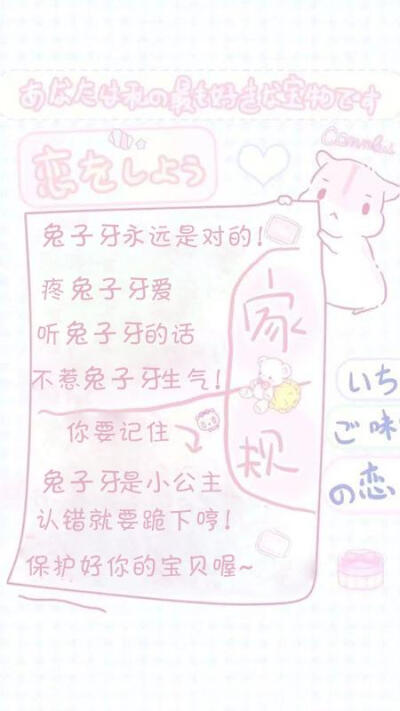 あなたは私の最も好きな宝物です
恋をしよう
兔子牙永远是对的！
疼兔子牙爱
听兔子牙的话
不惹兔子牙生气！
家规
你要记住
兔子牙是小公主
认错就要跪下哼！
保护好你的宝贝喔~
いち
ご味
の恋